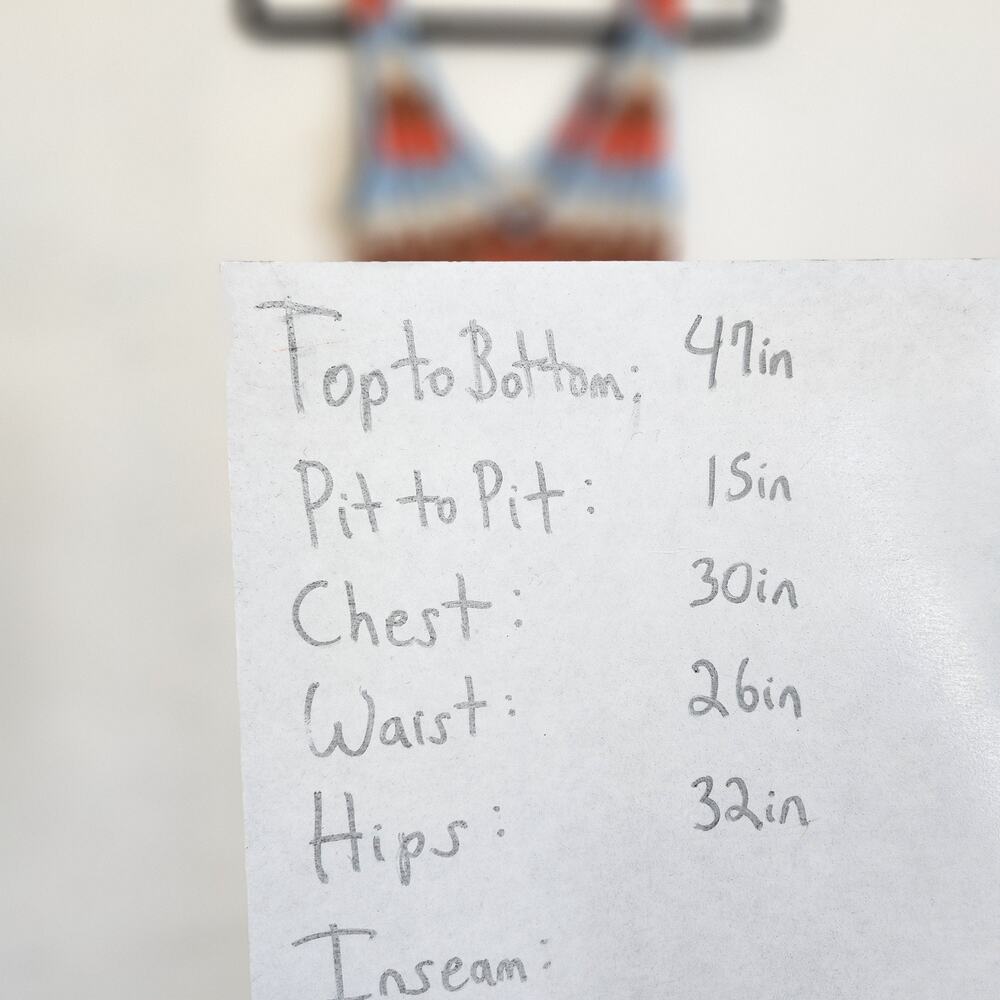 Top to Bottom; 47in
Pit to Pit: 15in
Chest: 30in
Waist: 26in
Hips: 32in
Inseam: